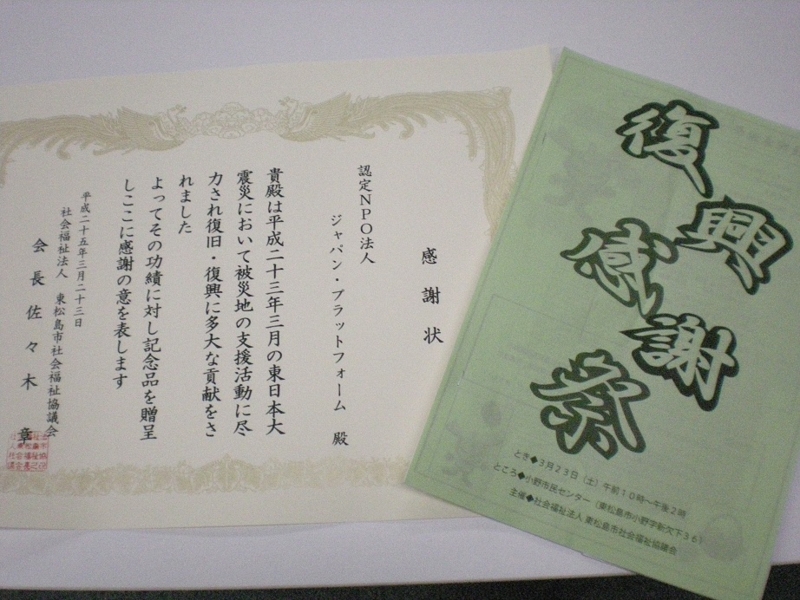 感謝状
認定NPO法人
ジャパン・プラットフォーム 殿
貴殿は平成二十三年三月の東日本大
震災において被災地の支援活動に尽
力され復旧・復興に多大な貢献をさ
れました
よってその功績に対し記念品を贈呈
しここに感謝の意を表します
平成二十五年三月二十三日
社会福祉法人 東松島市社会福祉協議会
会長 佐々木 章
復興
感謝
祭
とき◆3月23日(土)午前10時～午後2時
ところ◆小野市民センター(東松島市小野字新欠下36)
主催◆社会福祉法人 東松島市社会福祉協議会